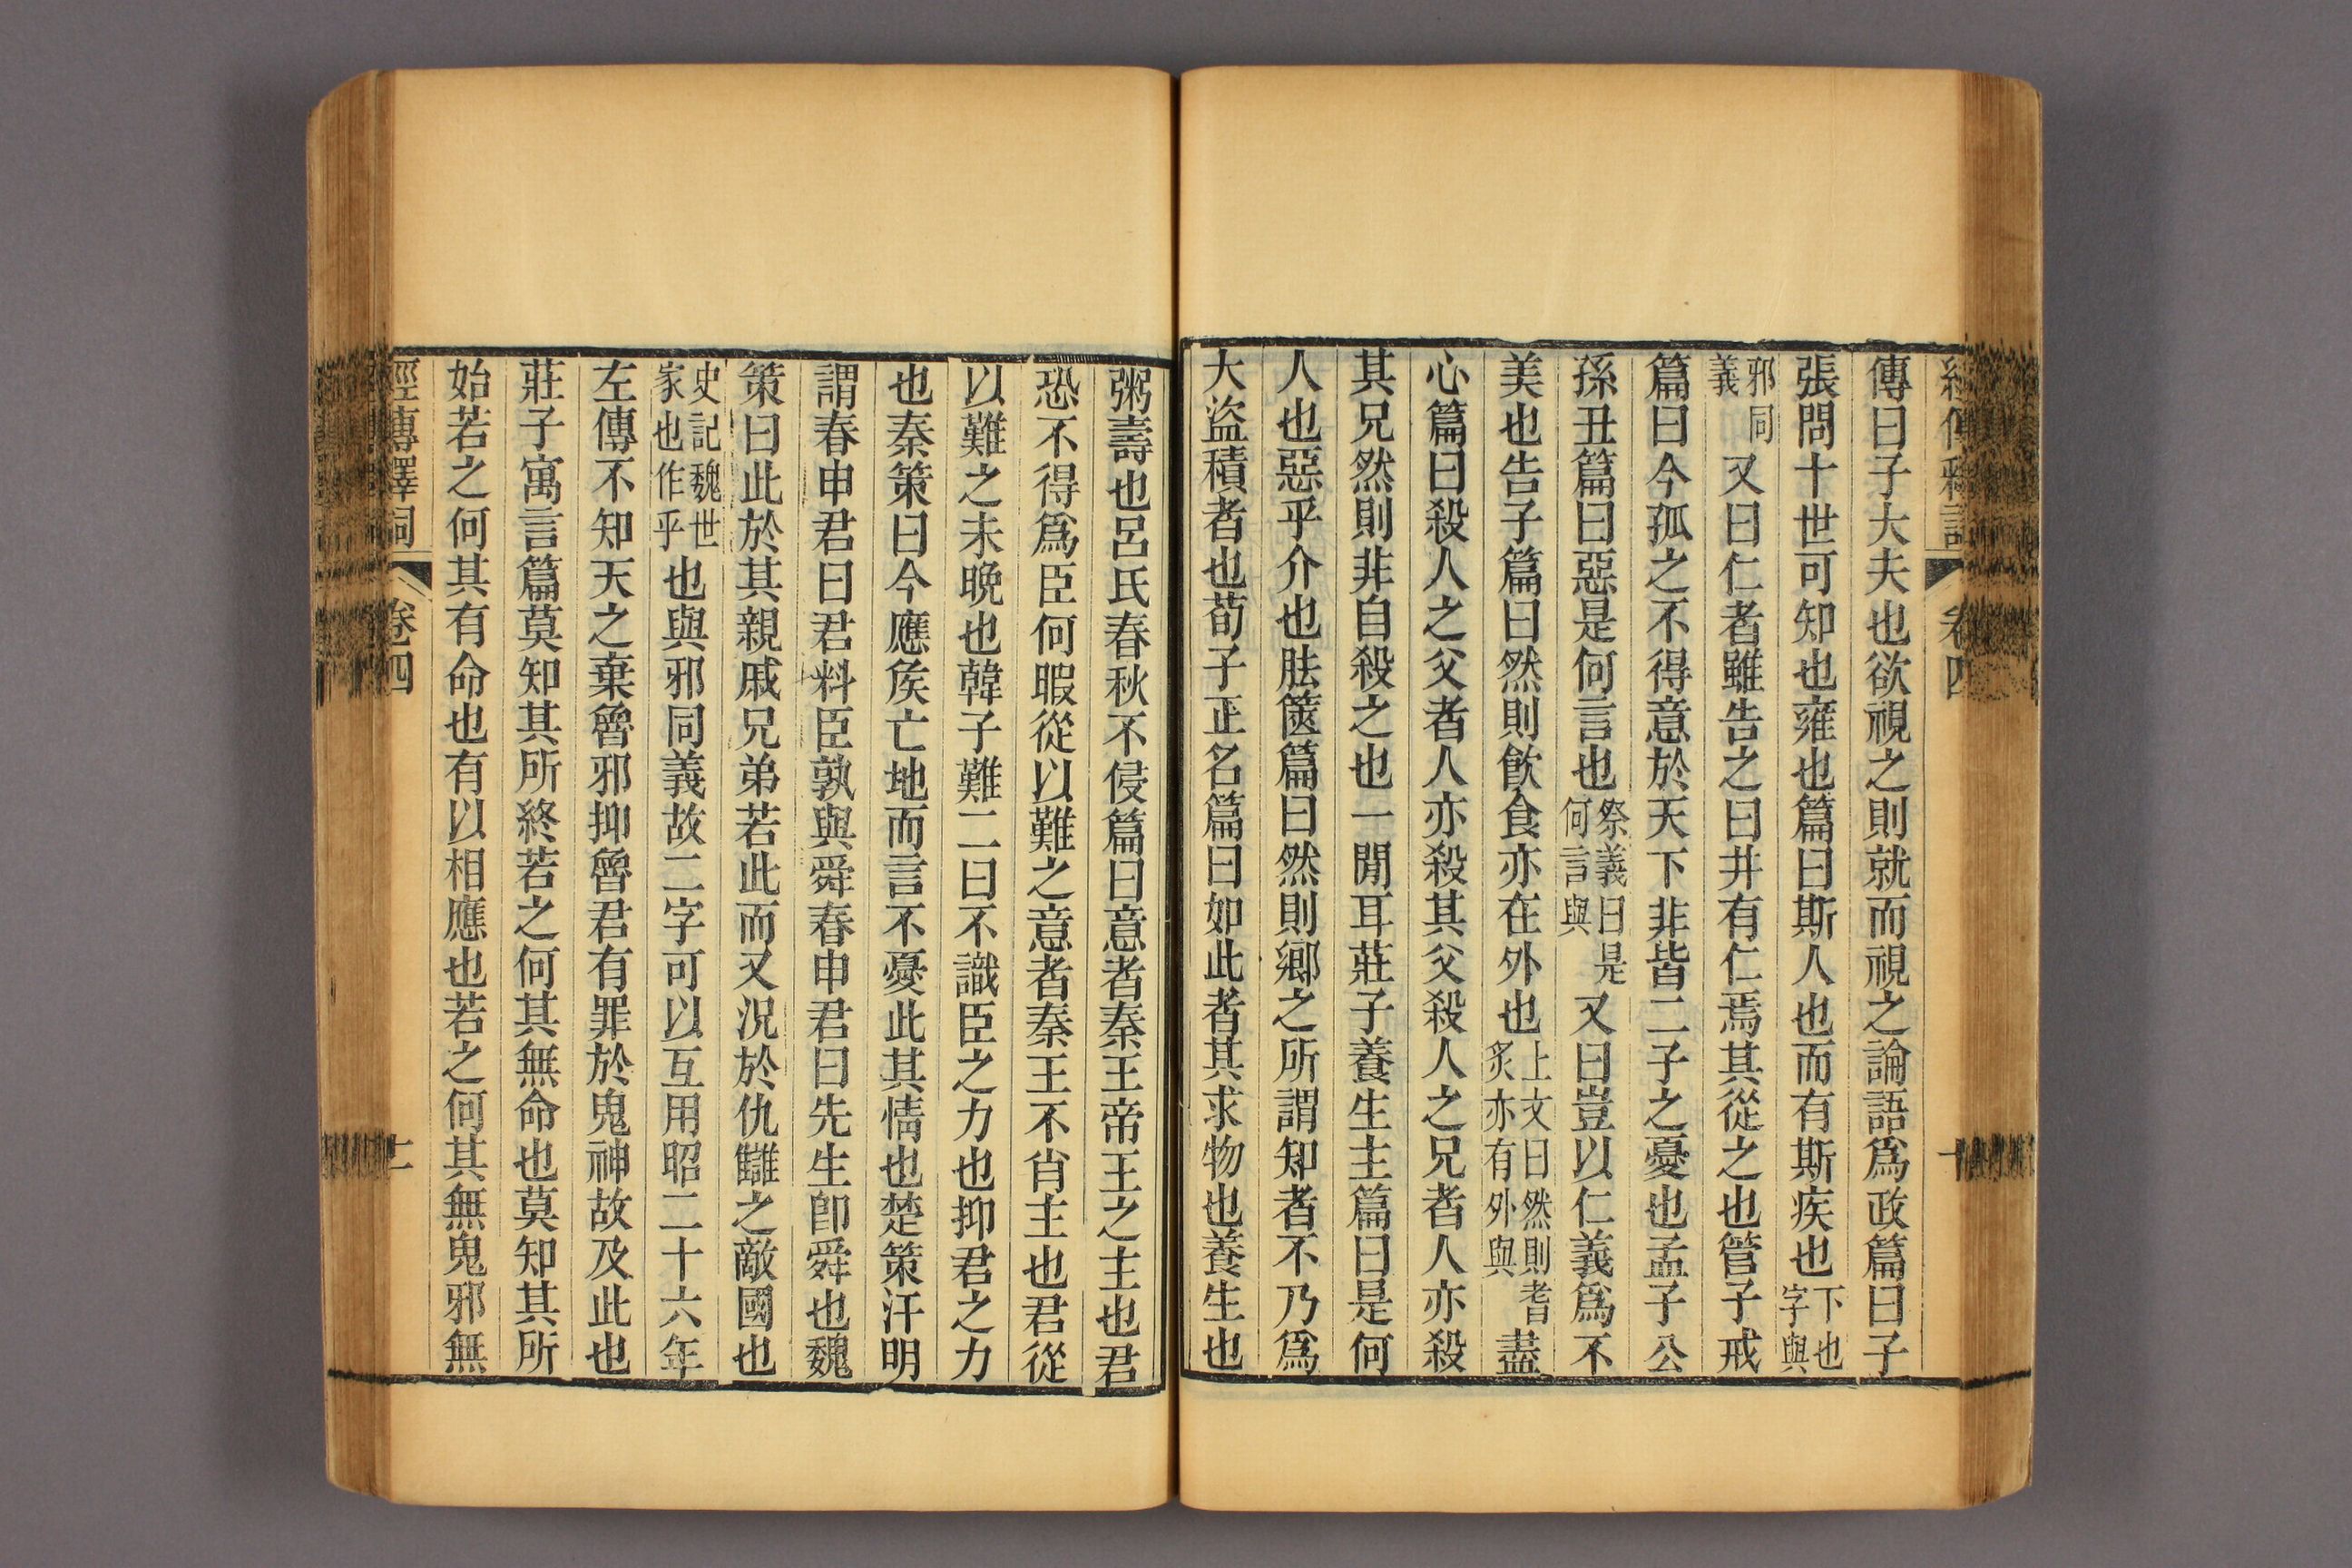 經傳釋詞 卷四 十
傳曰子大夫也欲視之則就而視之論語爲政篇曰子
張問十世可知也雍也篇曰斯人也而有斯疾也下也字與
邪同義又曰仁者雖告之曰井有仁焉其從之也管子戒
篇曰今孤之不得意於天下非皆二子之憂也孟子公
孫丑篇曰惡是何言也祭義曰是何言與又曰豈以仁義爲不
美也告子篇曰然則飮食亦在外也上文曰然則耆炙亦有外與盡
心篇曰殺人之父者人亦殺其父殺人之兄者人亦殺
其兄然則非自殺之也一閒耳莊子養生主篇曰是何
人也惡乎介也胠篋篇曰然則鄉之所謂知者不乃爲
大盜積者也荀子正名篇曰如此者其求物也養生也
粥壽也呂氏春秋不侵篇曰意者秦王帝王之主也君
恐不得爲臣何暇從以難之意者秦王不肖主也君從
以難之未晚也韓子難二曰不識臣之力也抑君之力
也秦策曰今應矦亡地而言不憂此其情也楚策汗明
謂春申君曰君料臣孰與舜春申君曰先生卽舜也魏
策曰此於其親戚兄弟若此而又況於仇讎之敵國也
史記魏世家也作乎也與邪同義故二字可以互用昭二十六年
左傳不知天之棄魯邪抑魯君有罪於鬼神故及此也
莊子寓言篇莫知其所終若之何其無命也莫知其所
始若之何其有命也有以相應也若之何其無鬼邪無
經傳釋詞 卷四